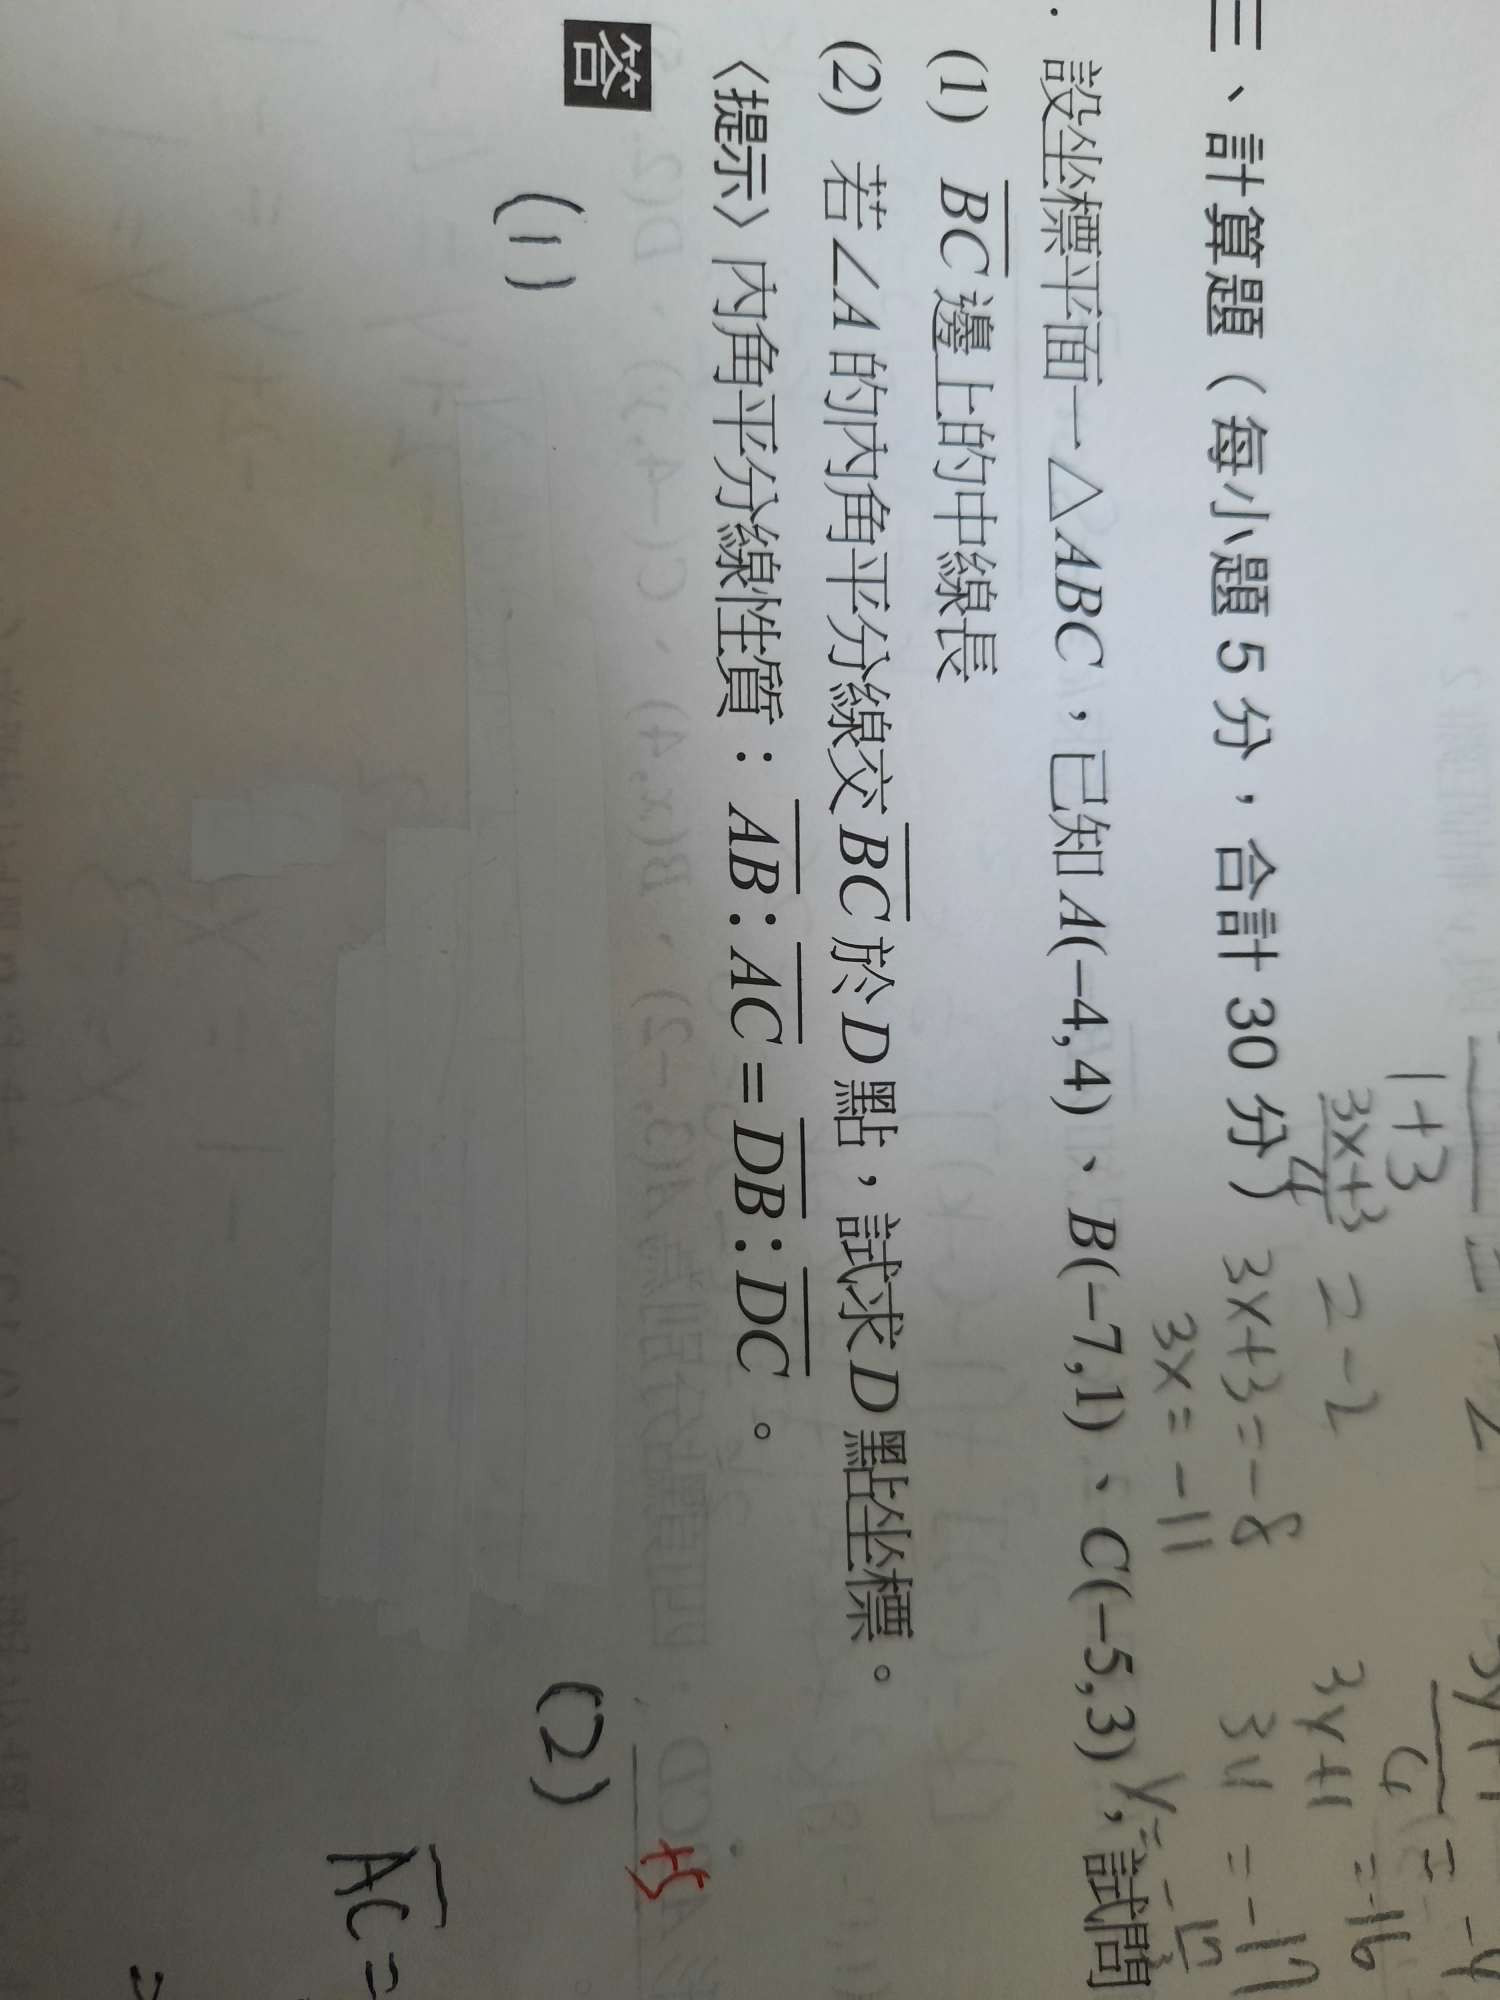 三、計算題（每小題 5 分，合計 30 分）
1+3
3x+3
4
= -2
3x+3=-8
3x=-11
4
3y+1
=-16
=-17
設坐標平面一△ABC，已知 A(−4,4)、B(−7,1)、C(−5,3)，試問
(1) BC邊上的中線長
(2) 若∠A 的內角平分線交BC於D 點，試求D 點坐標。
〈提示〉內角平分線性質：AB:AC=DB:DC。
答
(1)
(2)
+5
AC=